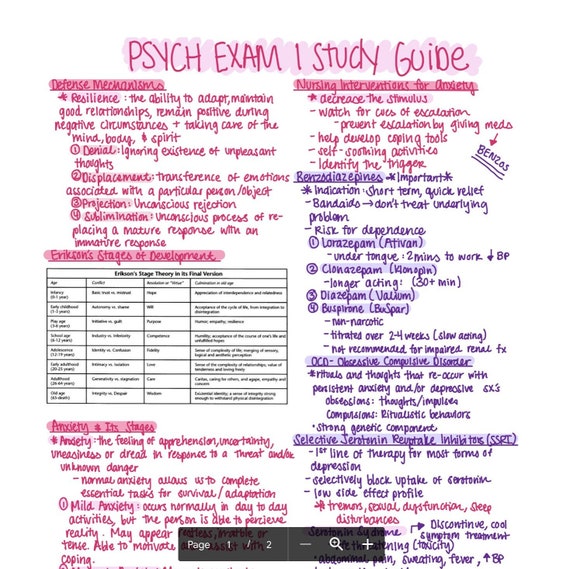 PSYCH EXAM 1 STUDY GUIDE
Defense Mechanisms
* Resilience: the ability to adapt, maintain
good relationships, remain positive during
negative circumstances + taking care of the
mind, body, & spirit
① Denial: Ignoring existence of unpleasant
thoughts
② Displacement: transference of emotions
associated with a particular person/object
③ Projection: Unconscious rejection
④ Sublimination: Unconscious process of re-
placing a mature response with an
immature response
Erikson's Stages of Development
Erikson's Stage Theory in its Final Version
Age Conflict Resolution or "Virtue" Culmination in old age
Infancy (0-1 year) Basic trust vs. mistrust Hope Appreciation of interdependence and relatedness
Early childhood (1-3 years) Autonomy vs. shame Will Acceptance of the cycle of life, from integration to disintegration
Play age (3-6 years) Initiative vs. guilt Purpose Humor; empathy; resilience
School age (6-12 years) Industry vs. inferiority Competence Humility; acceptance of the course of one's life and unfulfilled hopes
Adolescence (12-19 years) Identity vs. Confusion Fidelity Sense of complexity of life; merging of sensory, logical and aesthetic perception
Early adulthood (20-25 years) Intimacy vs. isolation Love Sense of the complexity of relationships; value of tenderness and loving freely
Adulthood (26-64 years) Generativity vs. stagnation Care Caritas, caring for others, and agape, empathy and concern
Old age (65-death) Integrity vs. Despair Wisdom Existential identity; a sense of integrity strong enough to withstand physical disintegration
Anxiety & Its Stages
* Anxiety: the feeling of apprehension, uncertainty,
uneasiness or dread in response to a threat and/or
unknown danger
- normal anxiety allows us to complete
essential tasks for survival/adaptation
① Mild Anxiety: occurs normally in day to day
activities, but the person is able to percieve
reality. May appear restless, irritable or
tense. Able to motivate
coping.
Nursing Interventions for Anxiety
* decrease the stimulus
- watch for cues of escalation
- prevent escalation by giving meds
- help develop coping tools
- self-soothing activities
- Identify the trigger
BENZOS
Benzodiazepines *Important*
* Indication: Short term, quick relief
- Bandaids → don't treat underlying
problem
- Risk for dependence
① Lorazepam (Ativan)
- under tongue: 2mins to work ↓BP
② Clonazepam (Klonopin)
- longer acting: (30+ min)
③ Diazepam (Valium)
④ Buspirone (BuSpar)
- non-narcotic
- titrated over 2-4 weeks (slow acting)
- not recommended for impaired renal fx
OCD - Obsessive Compulsive Disorder
* rituals and thoughts that re-occur with
persistent anxiety and/or depressive sx's
obsessions: thoughts/impulses
Compulsions: Ritualistic behaviors
· strong genetic component
Selective Serotonin Reuptake Inhibitors (SSRI)
- 1st line of therapy for most forms of
depression
- selectively block uptake of serotonin
- low side effect profile
* tremors, sexual dysfunction, sleep
disturbances
Serotonin Syndrome → Discontinue, cool
symptom treatment
threatening (toxicity)
· abdominal pain, sweating, fever, ↑BP
Page 1 / 2 — +